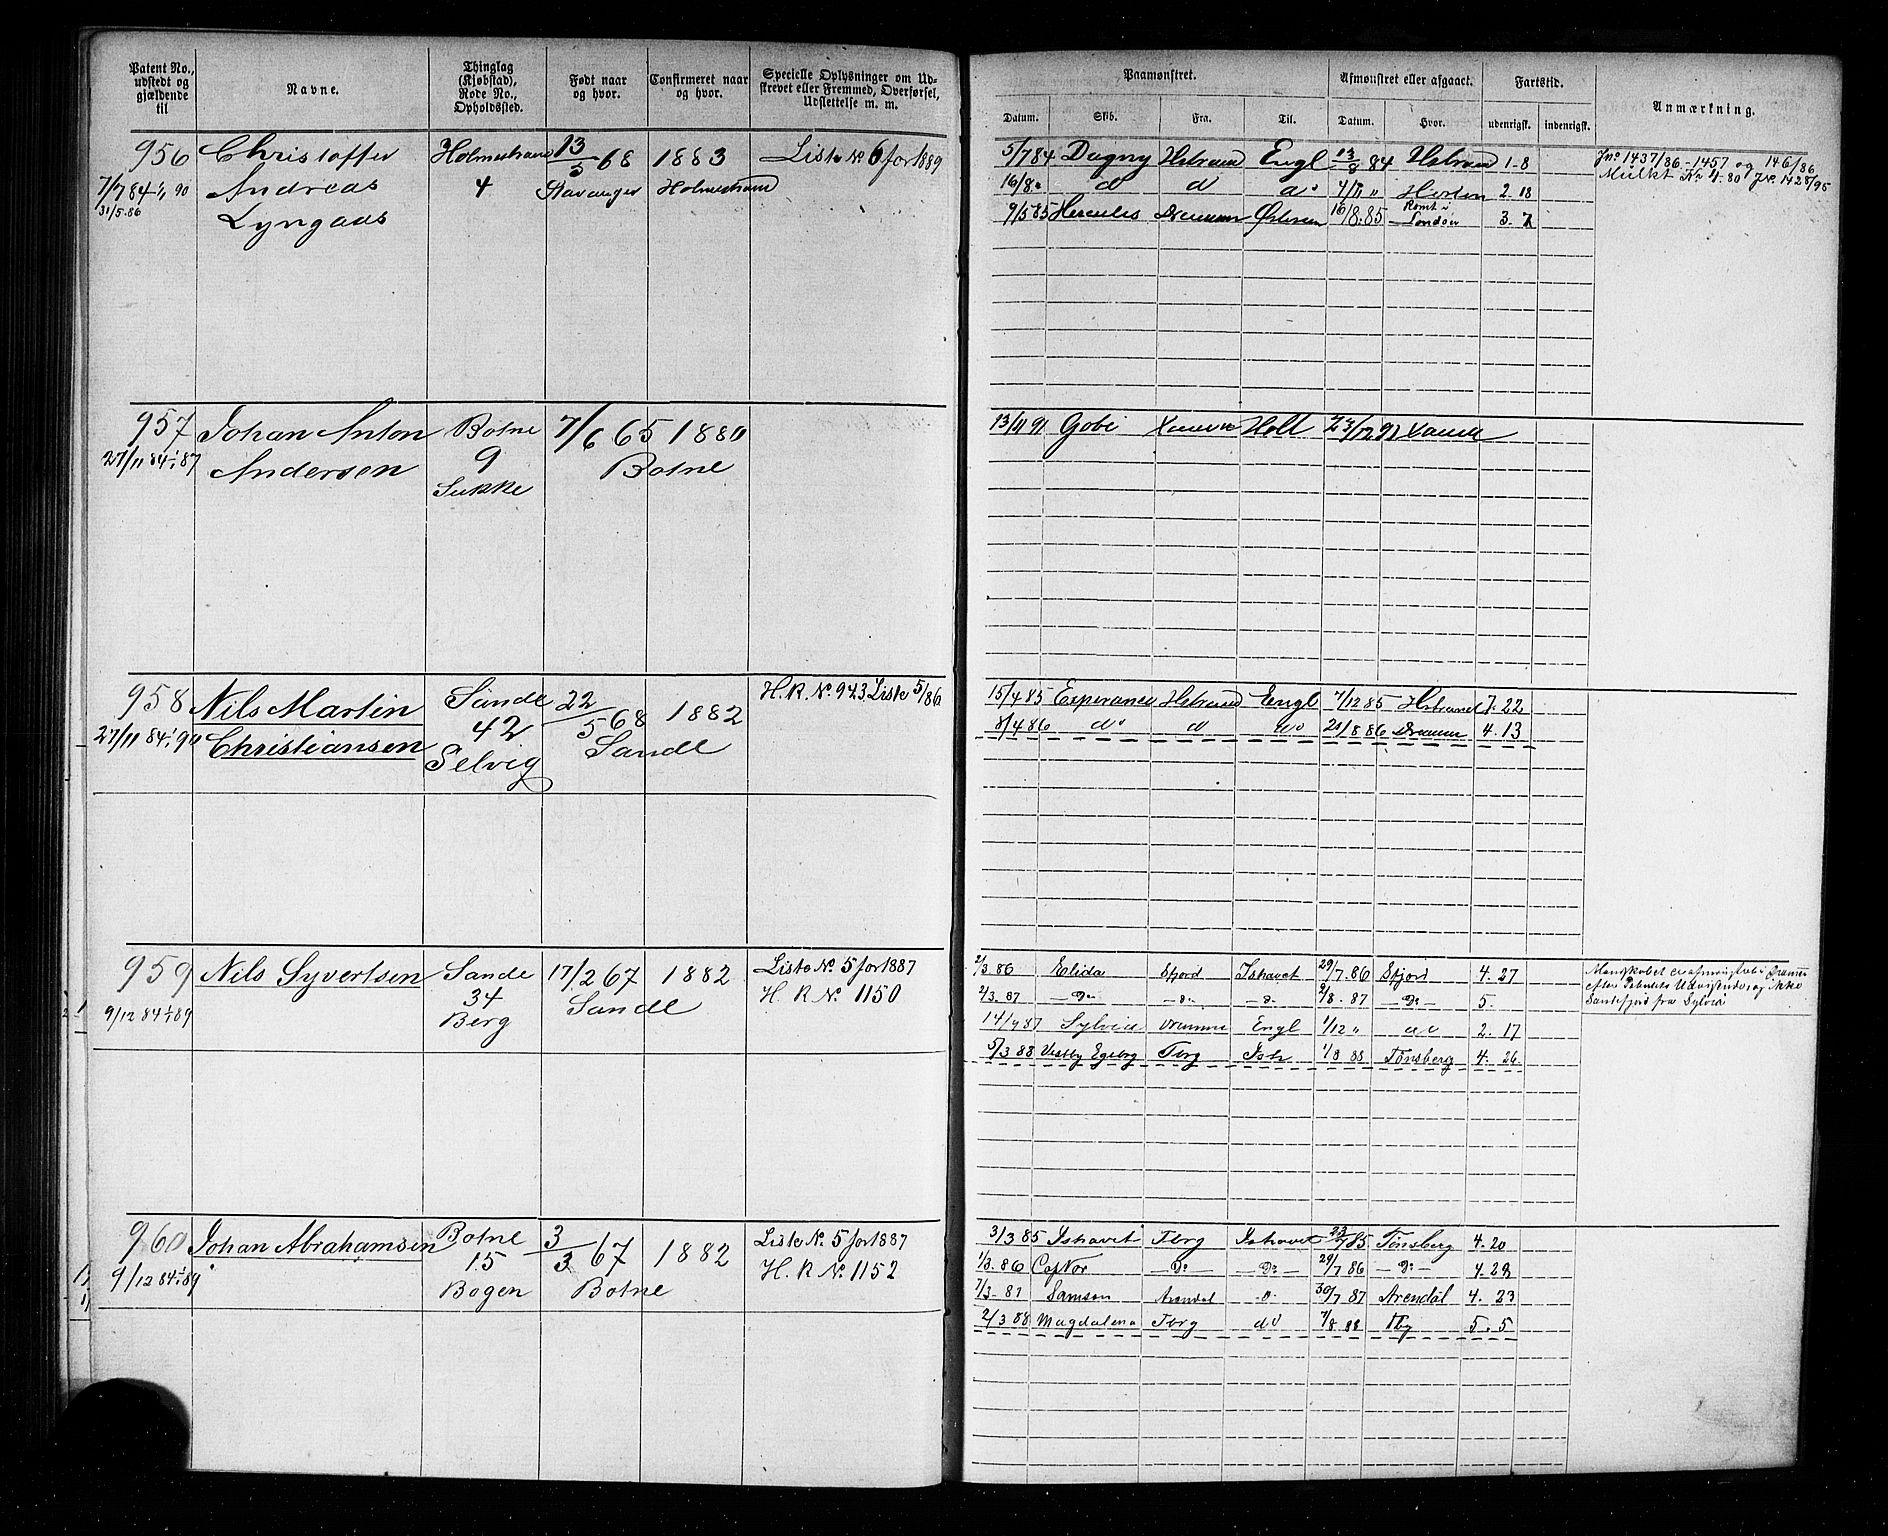 Patent No., udstedt og gjældende til
Navne.
Thinglag (Kjøbstad), Rode No., Opholdssted.
Født naar og hvor.
Confirmeret naar og hvor.
Specielle Oplysninger om Udskrevet eller Fremmed, Overførsel, Udslettelse m. m.
Paamønstret.
Afmønstret eller afgaaet.
Fartstid.
Anmærkning.
Datum. Skib. Fra. Til. Datum. Hvor. udenrigsk. indenrigsk.
956 Christoffer Holmestrand 13/5 68 1883 Liste No 6 for 1889
7/7 84 1/1 90 Andreas 4 Stavanger Holmestrand
31/5.86 Lyngaas
5/7 84 Dagny Hstrand Engl 13/8 84 Hstrand 1-8
16/8 d d do 4/11 " Horten 2.18
9/5 85 Hercules Drammen Østersø 16/8.85 Rømt i London 3.7
Jno 1437/86-1457 og 146/86
Mulkt Kr 4.80 Jr. 1428/95
957 Johan Anton Botne 7/6 65 1880
27/11 84 1/1 87 Andersen 9 Botne
Sukke
13/11 91 Gobi Holl 23/12 92
958 Nils Martin Sande 22/5 68 1882 H. R. No. 943 Liste 5/86
27/11 84 1/1 90 Christiansen 42 Sande
Selvig
15/4 85 Esperance Hstrand Engl 7/12 85 Hstrand 7.22
8/4 86 do d do 21/8 86 Drammen 4.13
959 Nils Syvertsen Sande 17/2 67 1882 Liste No. 5 for 1887
34 Sande H. R No. 1150
9/12 84 1/1 89 Berg
2/3.86 Elida Sfjord Ishavet 29/7.86 Sfjord 4.27
2/3.87 -Do- -Do- -Do- 2/8.87 -Do- 5.
14/9 87 Sylvia Dramme Engl 1/12 " do 2.17
5/3 88 Vestby Egeberg Tbrg Ish 1/8 88 Tønsberg 4.26
960 Johan Abrahamsen Botne 3/3 67 1882 Liste No. 5 for 1887
15 H. R No. 1152
9/12 84 1/1 89 Bogen Botne
3/3 85 Ishavet Tbrg Ishavet 23/7 85 Tønsberg 4.20
1/3.86 Cap Nor -Do- -Do- 29/7 86 -Do- 4.28
7/3-87 Samson Arendal -Do- 30/7 87 Arendal 4.23
2/3 88 Magdalena Tbrg do 7/8 88 Tbg 5.5